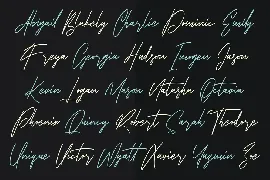 Abigail Blakely Charlie Dominic Emily
Freya Georgia Hudson Imogen Jason
Kevin Logan Mason Natasha Octavia
Phoenix Quincy Robert Sarah Theodore
Unique Victor Wyatt Xavier Zoe